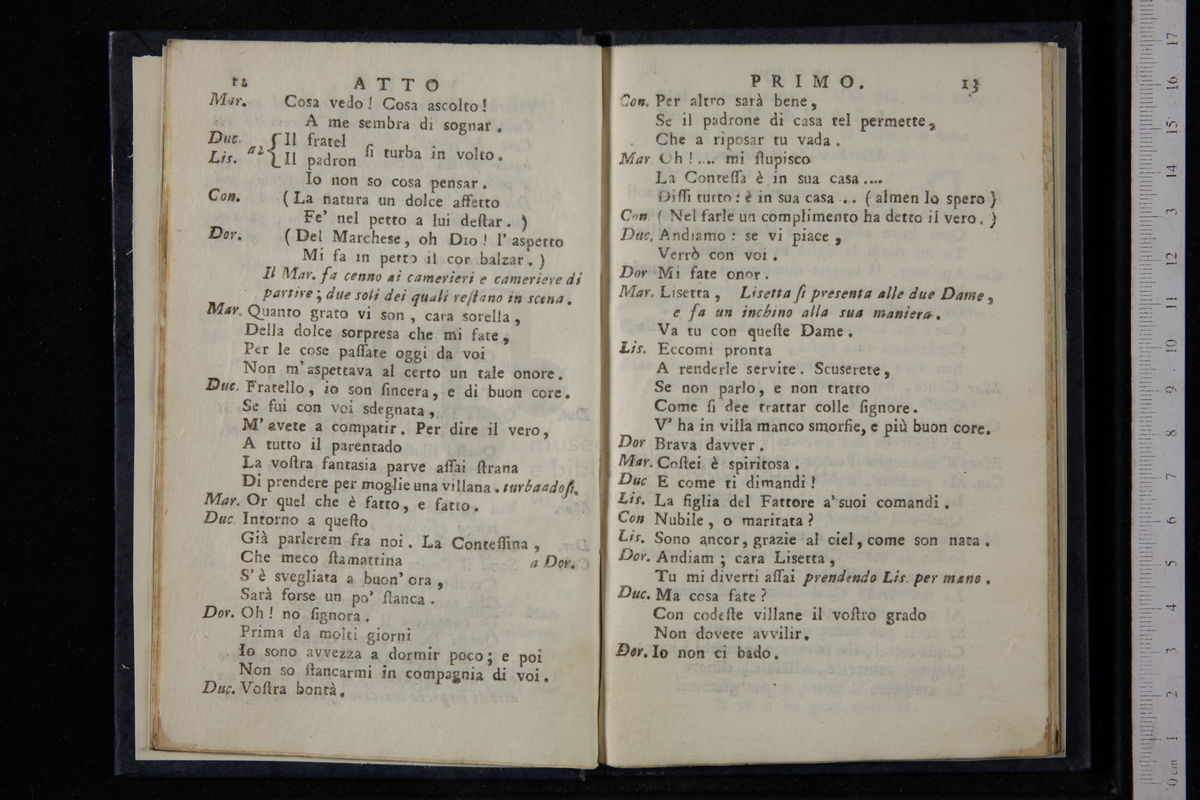 12 ATTO
Mar. Cosa vedo! Cosa ascolto!
A me sembra di sognar.
Duc. a2 { Il fratel
Lis. { Il padron ſi turba in volto.
Io non so cosa pensar.
Con. (La natura un dolce affetto
Fe' nel petto a lui deſtar.)
Dor. (Del Marchese, oh Dio! l'aspetto
Mi fa in petto il cor balzar.)
Il Mar. fa cenno ai camerieri e cameriere di
partire; due soli dei quali reſtano in scena.
Mar. Quanto grato vi son, cara sorella,
Della dolce sorpresa che mi fate,
Per le cose paſſate oggi da voi
Non m'aspettava al certo un tale onore.
Duc. Fratello, io son ſincera, e di buon core.
Se fui con voi sdegnata,
M'avete a compatir. Per dire il vero,
A tutto il parentado
La voſtra fantasia parve aſſai ſtrana
Di prendere per moglie una villana. turbandoſi.
Mar. Or quel che è fatto, e fatto.
Duc Intorno a queſto
Già parlerem fra noi. La Conteſſina,
Che meco ſtamattina a Dor.
S'è svegliata a buon'ora,
Sarà forse un po' ſtanca.
Dor. Oh! no ſignora.
Prima da molti giorni
Io sono avvezza a dormir poco; e poi
Non so ſtancarmi in compagnia di voi.
Duc. Voſtra bontà.
PRIMO. 13
Con. Per altro sarà bene,
Se il padrone di casa tel permette,
Che a riposar tu vada.
Mar Oh!.... mi ſtupisco
La Conteſſa è in sua casa....
Diſſi tutto: è in sua casa... (almen lo spero)
Con (Nel farle un complimento ha detto il vero.)
Duc. Andiamo: se vi piace,
Verrò con voi.
Dor Mi fate onor.
Mar. Lisetta, Lisetta ſi presenta alle due Dame,
e fa un inchino alla sua maniera.
Va tu con queſte Dame.
Lis. Eccomi pronta
A renderle servite. Scuserete,
Se non parlo, e non tratto
Come ſi dee trattar colle ſignore.
V'ha in villa manco smorfie, e più buon core.
Dor Brava davver.
Mar. Coſtei è spiritosa.
Duc E come ti dimandi!
Lis. La figlia del Fattore a'suoi comandi.
Con Nubile, o maritata?
Lis. Sono ancor, grazie al ciel, come son nata.
Dor. Andiam; cara Lisetta,
Tu mi diverti aſſai prendendo Lis. per mano.
Duc. Ma cosa fate?
Con codeſte villane il voſtro grado
Non dovete avvilir.
Dor. Io non ci bado.